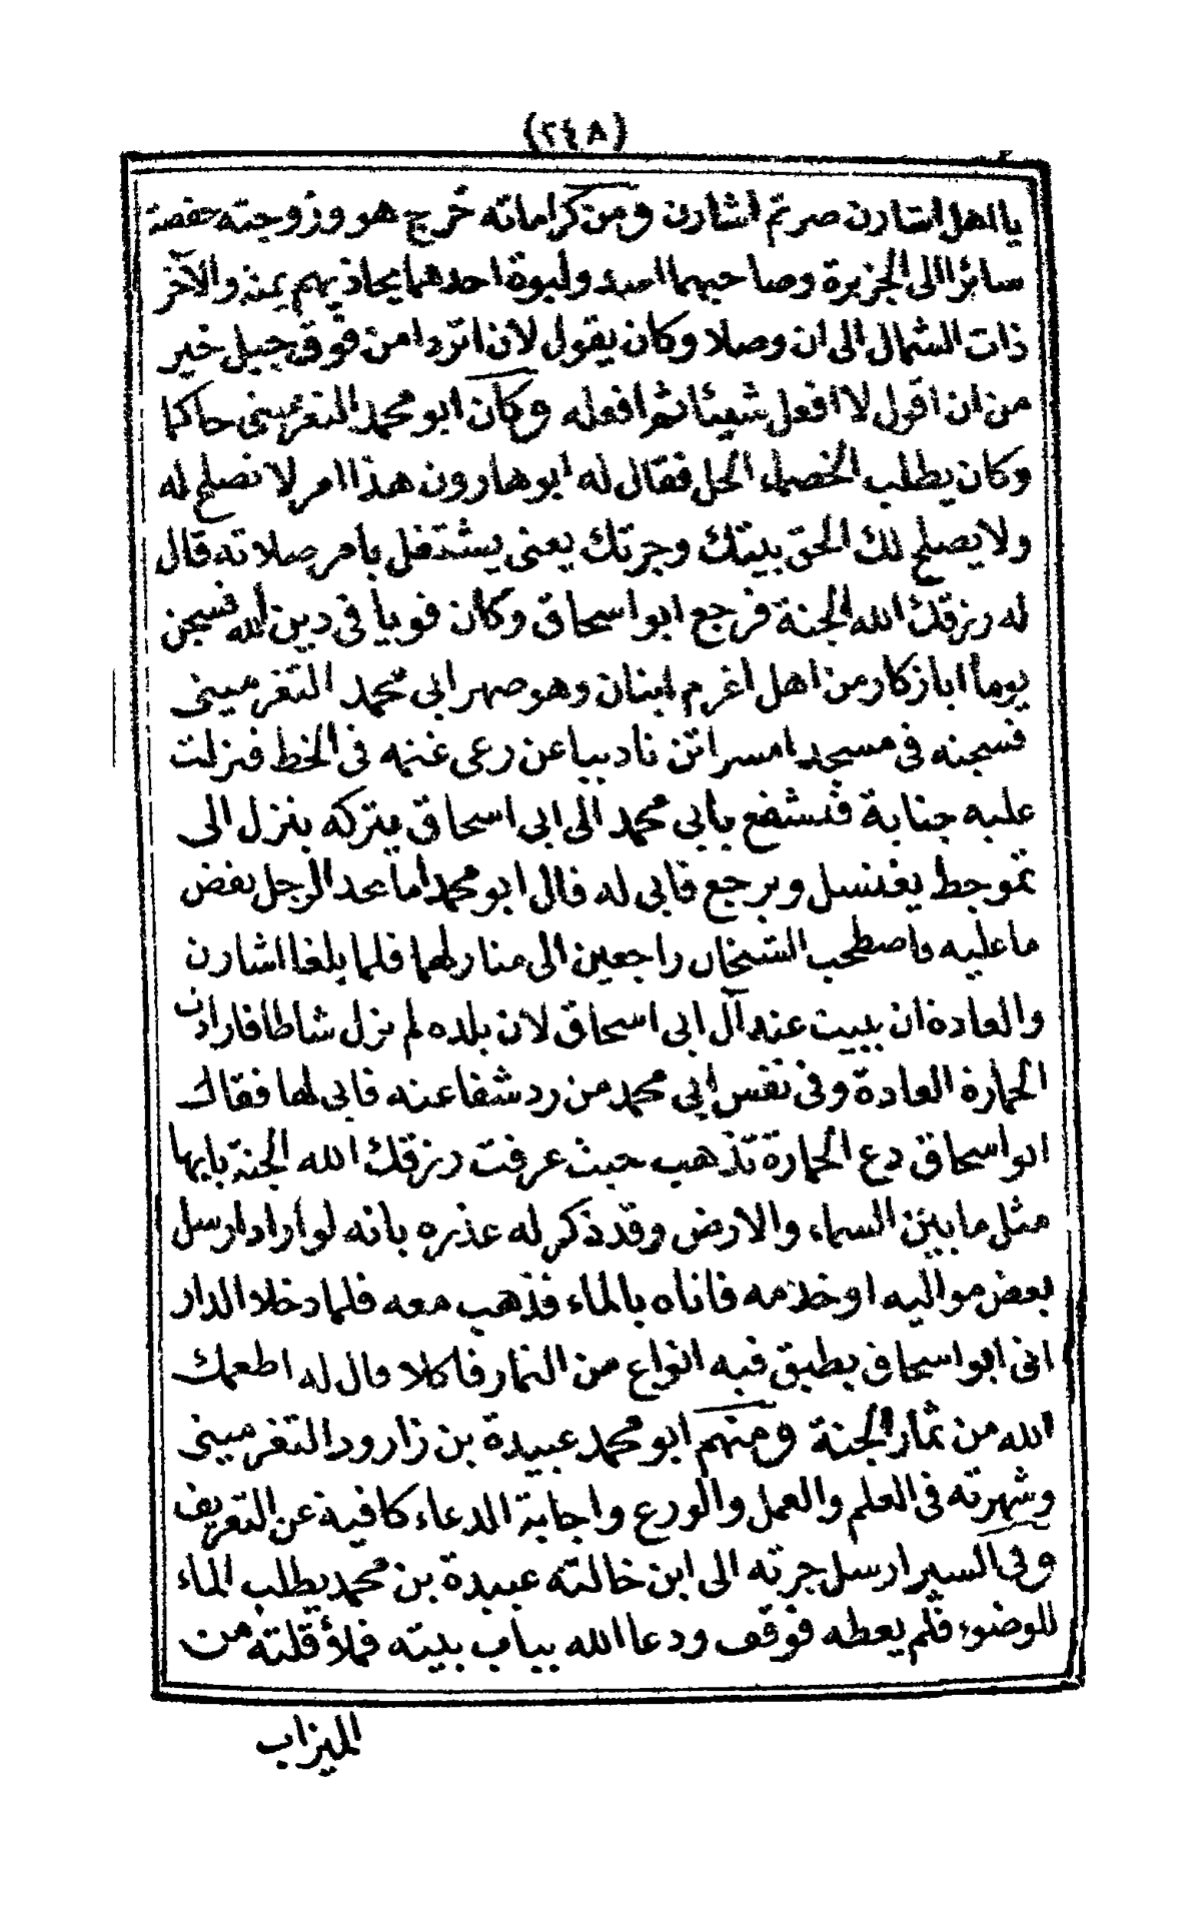 (٢٤٨)
يا اهل اشارن صرتم اشارن ومن كراماته خرج هو وزوجته حفصة
سائرا الى الجزيرة وصاحبهما اسد ولبوة احدهما يحاذيهم يمنة والآخر
ذات الشمال الى ان وصلا وكان يقول لان اتردا من فوق جبل خير
من ان اقول لا افعل شيئا ثم افعله وكان ابو محمد التغرميني حاكما
وكان يطلب الخصماء الحل فقال له ابو هارون هذا امر لا نصلح له
ولا يصلح لك الحق بيتك وجرتك يعنى يشتغل بامر صلاته قال
له رزقك الله الجنة فرجع ابو اسحاق وكان قويا فى دين الله فسجن
يوما ابا زكار من اهل اغرم اينان وهو صهر ابى محمد التغرمينى
فسجنه فى مسجد امسراتن ناديبا عن رعى غنمه فى الخط فنزلت
عليه جنابة فتشفع بابى محمد الى ابى اسحاق يتركه ينزل الى
تموجط يغتسل ويرجع فابى له قال ابو محمد اما تحد الرجل بغض
ما عليه واصطحب الشيخان راجعين الى منازلهما فلما بلغا اشارن
والعادة ان يبيت عند آل ابى اسحاق لان بلده لم نزل شاطا فارادت
الحمارة العادة وفى نفس ابى محمد من رد شفاعته فابى لها فقال
ابو اسحاق دع الحمارة تذهب حيث عرفت رزقك الله الجنة بابها
مثل ما بين السماء والارض وقد ذكر له عذره بانه لو اراد ارسل
بعض مواليه او خدمه فاتاه بالماء فذهب معه فلما دخلا الدار
اتى ابو اسحاق بطبق فيه انواع من الثمار فاكلا قال له اطعمك
الله من ثمار الجنة ومنهم ابو محمد عبيدة بن زارود التغرمينى
وشهرته فى العلم والعمل والورع واجابة الدعاء كافية عن التعريف
وفى السير ارسل جرته الى ابن خالته عبيدة بن محمد يطلب الماء
للوضوء فلم يعطه فوقف ودعا الله بباب بيته فملأ قلته من
الميزاب